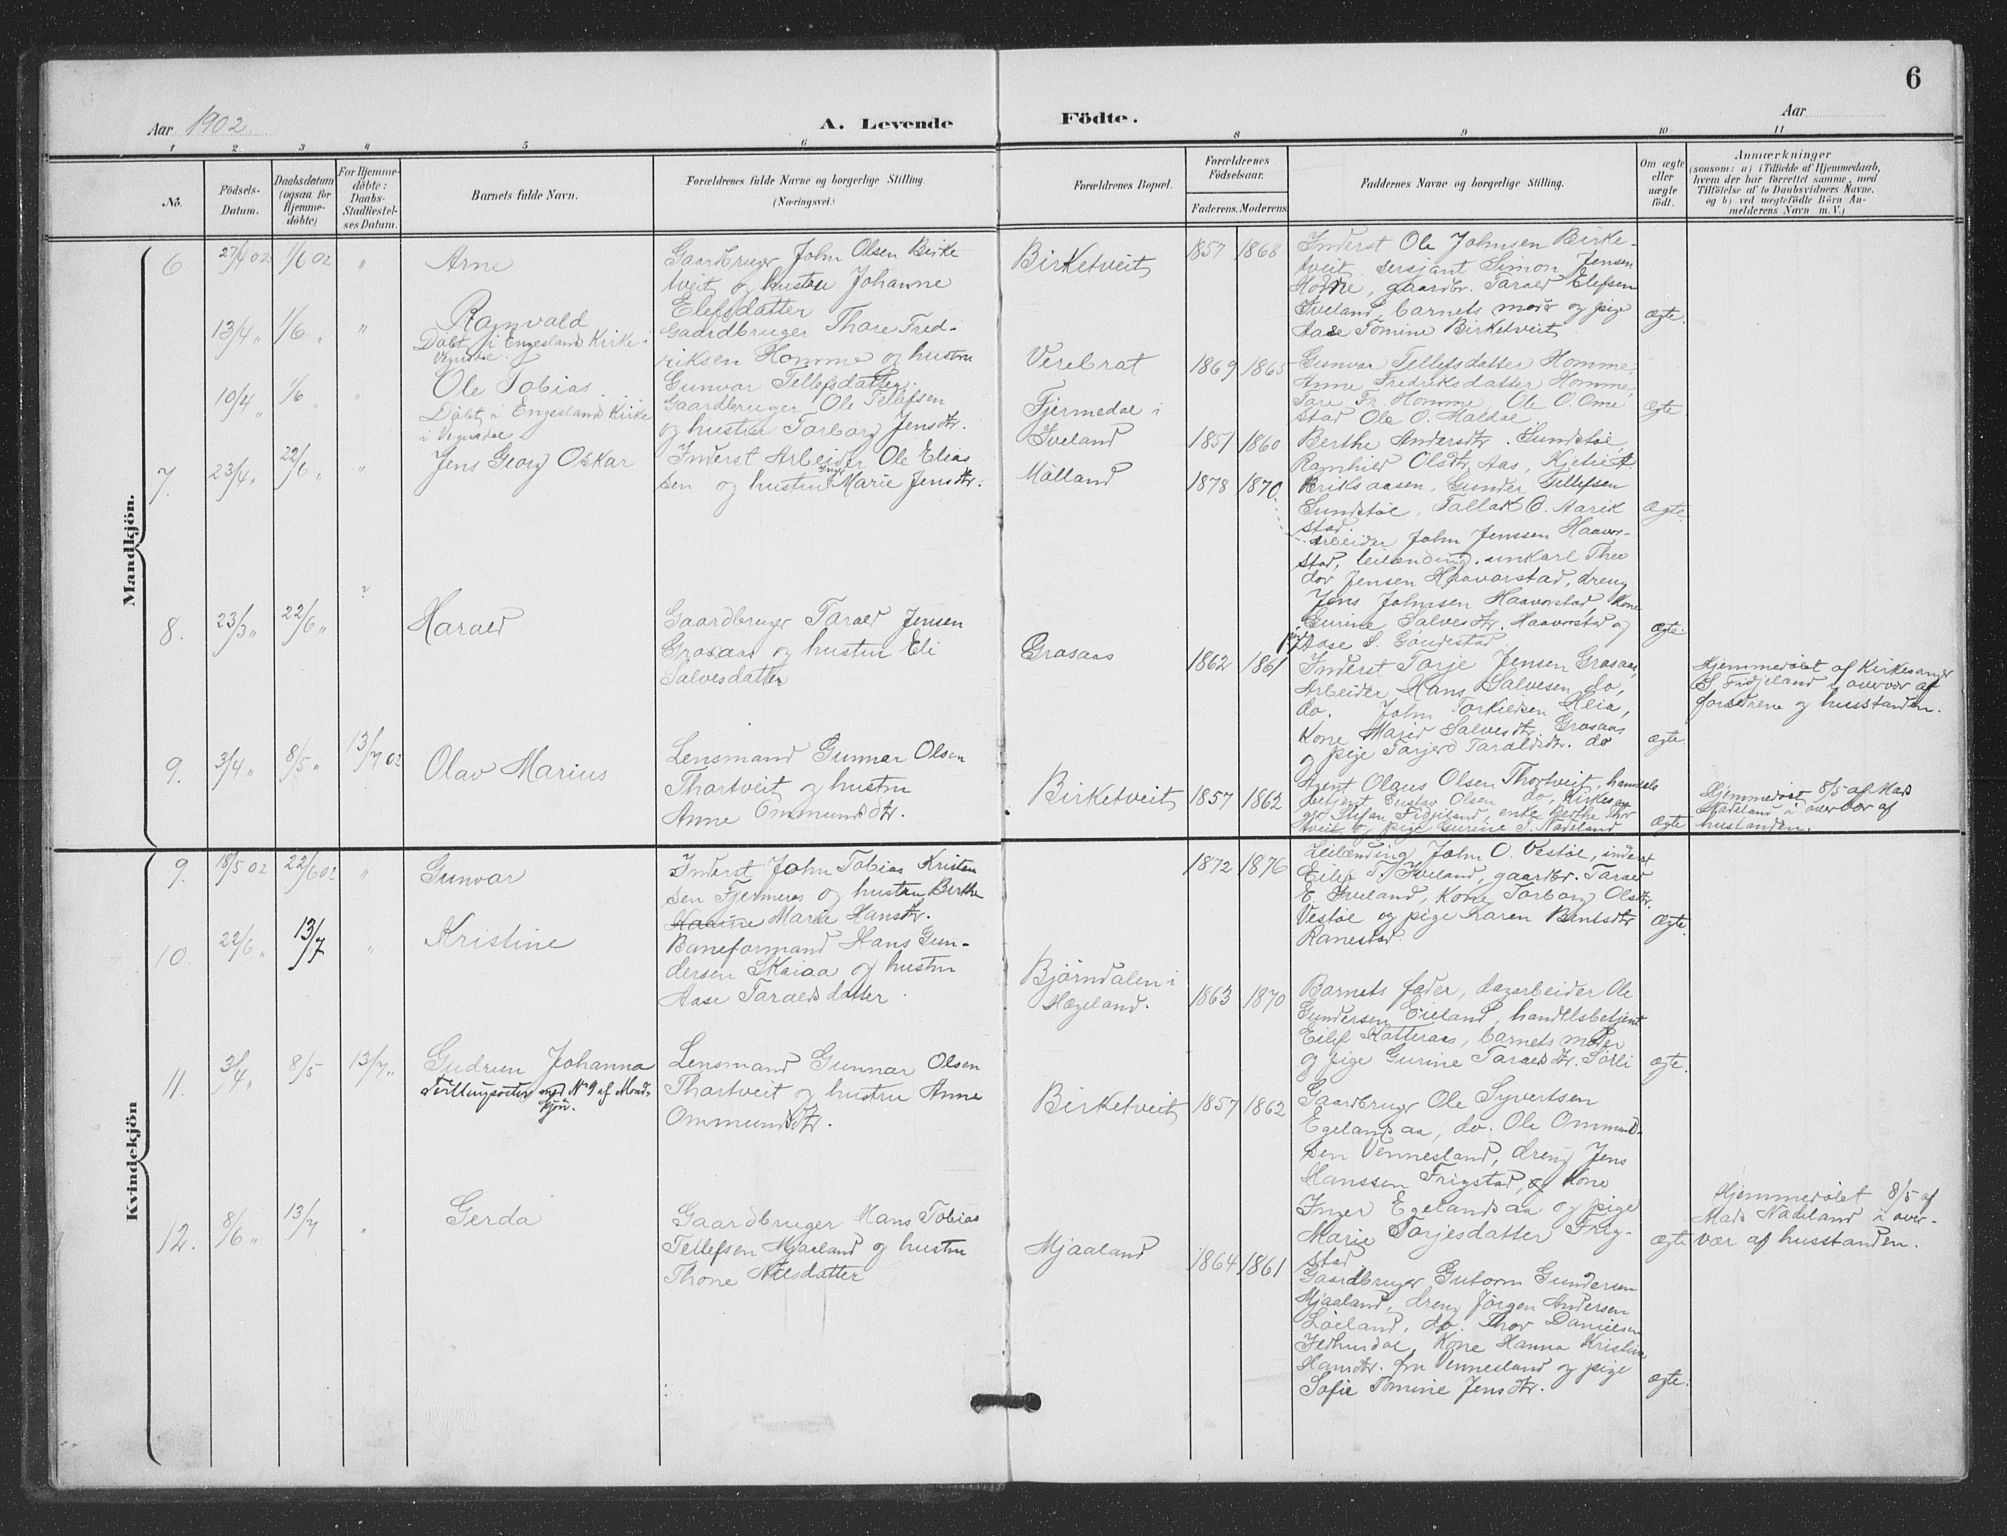 6
Aar 1902.
A. Levende Födte.
Aar
1 2 3 4 5 6 8 9 10 11
No.
Födsels-
Datum.
Daabsdatum
(ogsaa for
Hjemme-
döbte)
For Hjemme-
döbte:
Daabs-
Stadfæstel-
ses Datum.
Barnets fulde Navn.
Forældrenes fulde Navne og borgerlige Stilling
(Næringsvei.)
Forældrenes Bopæl.
Forældrenes
Födselsaar.
Faderens. Moderens
Faddernes Navne og borgerlige Stilling.
Om ægte
eller
uægte
födt.
Anmærkninger
(saasom: a) i Tilfælde af Hjemmedaab,
hvem der har forrettet samme, med
Tilföielse af to Daabsvidners Navne,
og b) ved uægtefödte Börn An-
melderens Navn m. V.)
Mandkjön.
6 27/4 02 1/6 02 " Arne
Gaardbruger John Olsen Birke
tveit og hustru Johanne
Elefsdatter
Birketveit 1857 1868
Inderst Ole Johnsen Birke-
tveit, sersjant Simon Jensen
gaardbr. Tarald Elefsen
Iveland, barnets moder og pige
Aase Tomine Birketveit
ægte.
13/4 " 1/6 " " Ranvald
Döbt i Engesland Kirke i
Vegusdal.
Gaardbruger Thore Fred-
riksen Homme og hustru
Gunvor Tellefsdatter.
Verebrat 1869 1865
Gunvor Tellefsdatter Homme,
Anne Fredriksdatter Homme,
Tore Fr. Homme, Ole O. Ome
stad Ole O. Maldal
ægte
10/4 " 1/6 " " Ole Tobias.
Döbt i Engesland Kirke
i Vegusdal.
Gaardbruger Ole Tellefsen
og hustru Torborg Jensdtr.
Fjermedal i
Iveland
1851 1860
Berthe Andersdtr. Sundstöl,
Ranhild Olsdtr. Aas, Kjetil A.
Eriksaasen, Gunder Tellefsen
Sundstöl, Tallak O. Aarik
stad.
ægte.
7. 23/4 " 22/6 " " Jens Georg Oskar
Inderst Arbeider Ole Elias
sen og hustru Inger Marie Jensdtr.
Mölland 1878 1870
Arbeider John Jenssen Haavor-
stad, leilending, unkarl Theo
dor Jensen Haavorstad, dreng
Jens Johnsen Haavorstad, Kone
Gurine Salvesdtr. Haavorstad og
pige Aase S. Göndestad
ægte.
8. 23/3 " 22/6 " " Harald
Gaardbruger Tarald Jensen
Grosaas og hustru Eli
Salvesdatter
Grosaas 1862 1861
Inderst Torje Jensen Grosaas,
Arbeider Hans Salvesen do,
do. John Torkildsen Heia,
Kone Maria Salvesdtr. Grosaas
og pige Torjer Taraldsdtr. do
ægte
Hjemmedöbt af Kirkesanger
S. Fidjeland i overvær af
forældrene og husstanden.
9. 3/4 " 8/5 " 13/7 02 Olav Marius
Lensmand Gunnar Olsen
Thortveit og hustru
Anne Ommundsdtr.
Birketveit 1857 1862
Agent Olaus Olsen Thortveit, handels
betjent Gustav Olsen do, Kirkesan
ger Stefan Fidjeland, enke Berthe Thor
tveit og pige Gurine T. Nadeland
ægte
Hjemmedöbt 8/5 af Mads
Nadeland i overvær af
husstanden.
Kvindekjön
9. 18/5 02 22/6 02 " Gunvor
Inderst John Tobias Kristen
sen Fjermeros og hustru Berthe
Marie Hansdtr.
1872 1876
Leilending John O. Vestöl, inderst
Eilef T. Iveland, gaardbr. Tarald
E. Iveland, Kone Torborg Olsdtr.
Vestöl og pige Karen Berntsdtr
Ranestad.
ægte.
10. 22/6 " 13/7 " Kristine
Baneformand Hans Gun-
dersen Skaiaa og hustru
Aase Taraldsdatter.
Björndalen i
Hægeland.
1863 1870
Barnets fader, dagarbeider Ole
Gundersen Eieland, handelsbetjent
Eilef Katteraas, barnets moder
og pige Gurine Taraldsdtr. Sörli
ægte.
11. 3/4 " 8/5 13/7 " Gudrun Johanna
Tvillingsöster med No 9 af Mand-
kjön.
Lensmand Gunnar Olsen
Thortveit og hustru Anne
Ommundsdtr.
Birketveit 1857 1862
Gaardbruger Ole Syvertsen
Egelandsaa, do. Ole Ommund-
sen Vennesland, dreng Jens
Hanssen Frigstad, og Kone
Inger Egelandsaa og pige
Marie Torjesdatter Frig-
stad
ægte
Hjemmedöbt 8/5 af
Mads Nadeland i over-
vær af husstanden.
12. 8/6 " 13/7 " Gerda
Gaardbruger Hans Tobias
Tellefsen Mjaaland og hustru
Thone Nilsdatter
Mjaaland 1864 1861
Gaardbruger Gutorm Gundersen
Mjaaland, dreng Jörgen Andersen
Löland, do. Thor Danielsen
Kone Hanna Kristine
Hansdtr. fru Vennesland og pige
Sofie Tomine Jensdtr.
ægte.